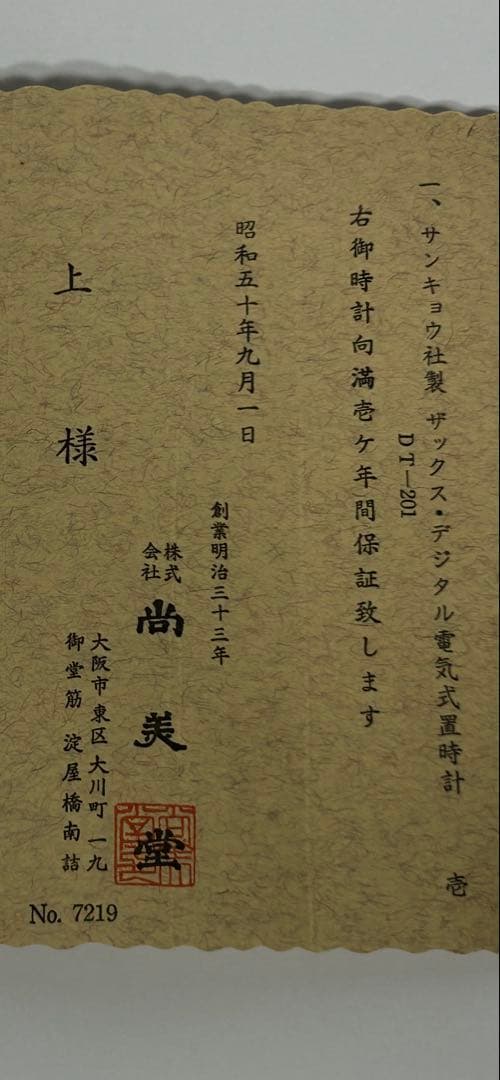 一、サンキョウ社製 ザックス・デジタル電気式置時計 壱
DT—201
右御時計向満壱ケ年間保証致します
昭和五十年九月一日
創業明治三十三年
株式会社 尚美堂
大阪市東区大川町一九
御堂筋 淀屋橋南詰
上様
No. 7219